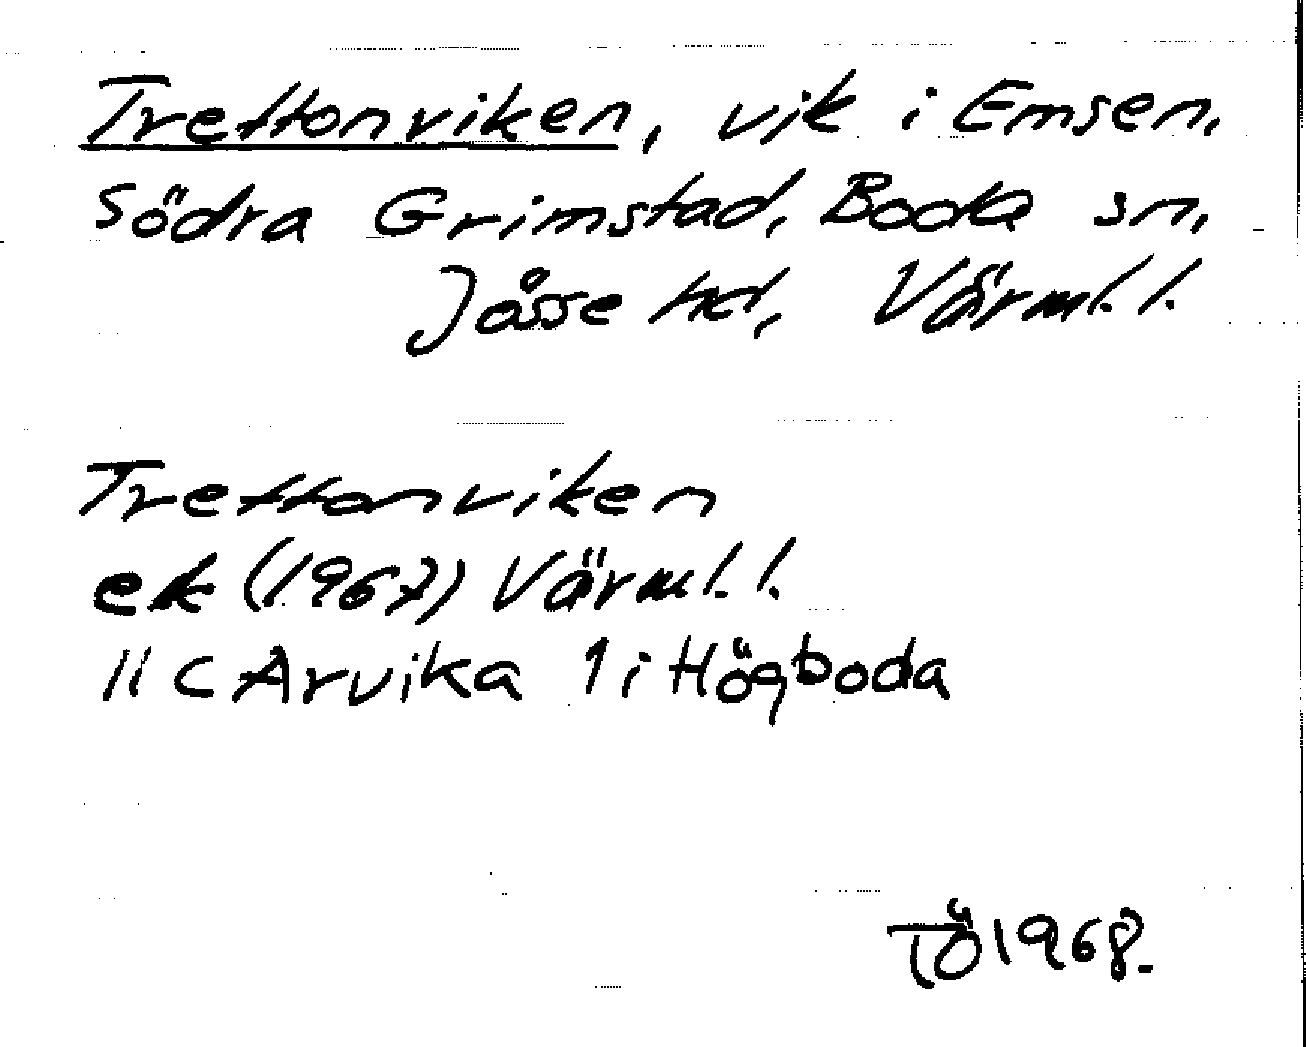 Trettonviken, vik i Emsen,
Södra Grimstad, Boda sn,
Jösse hd, Värml. l.
Trettonviken
ek (1967) Värml. l.
11 C Arvika 1 i Högboda
TÖ 1968.